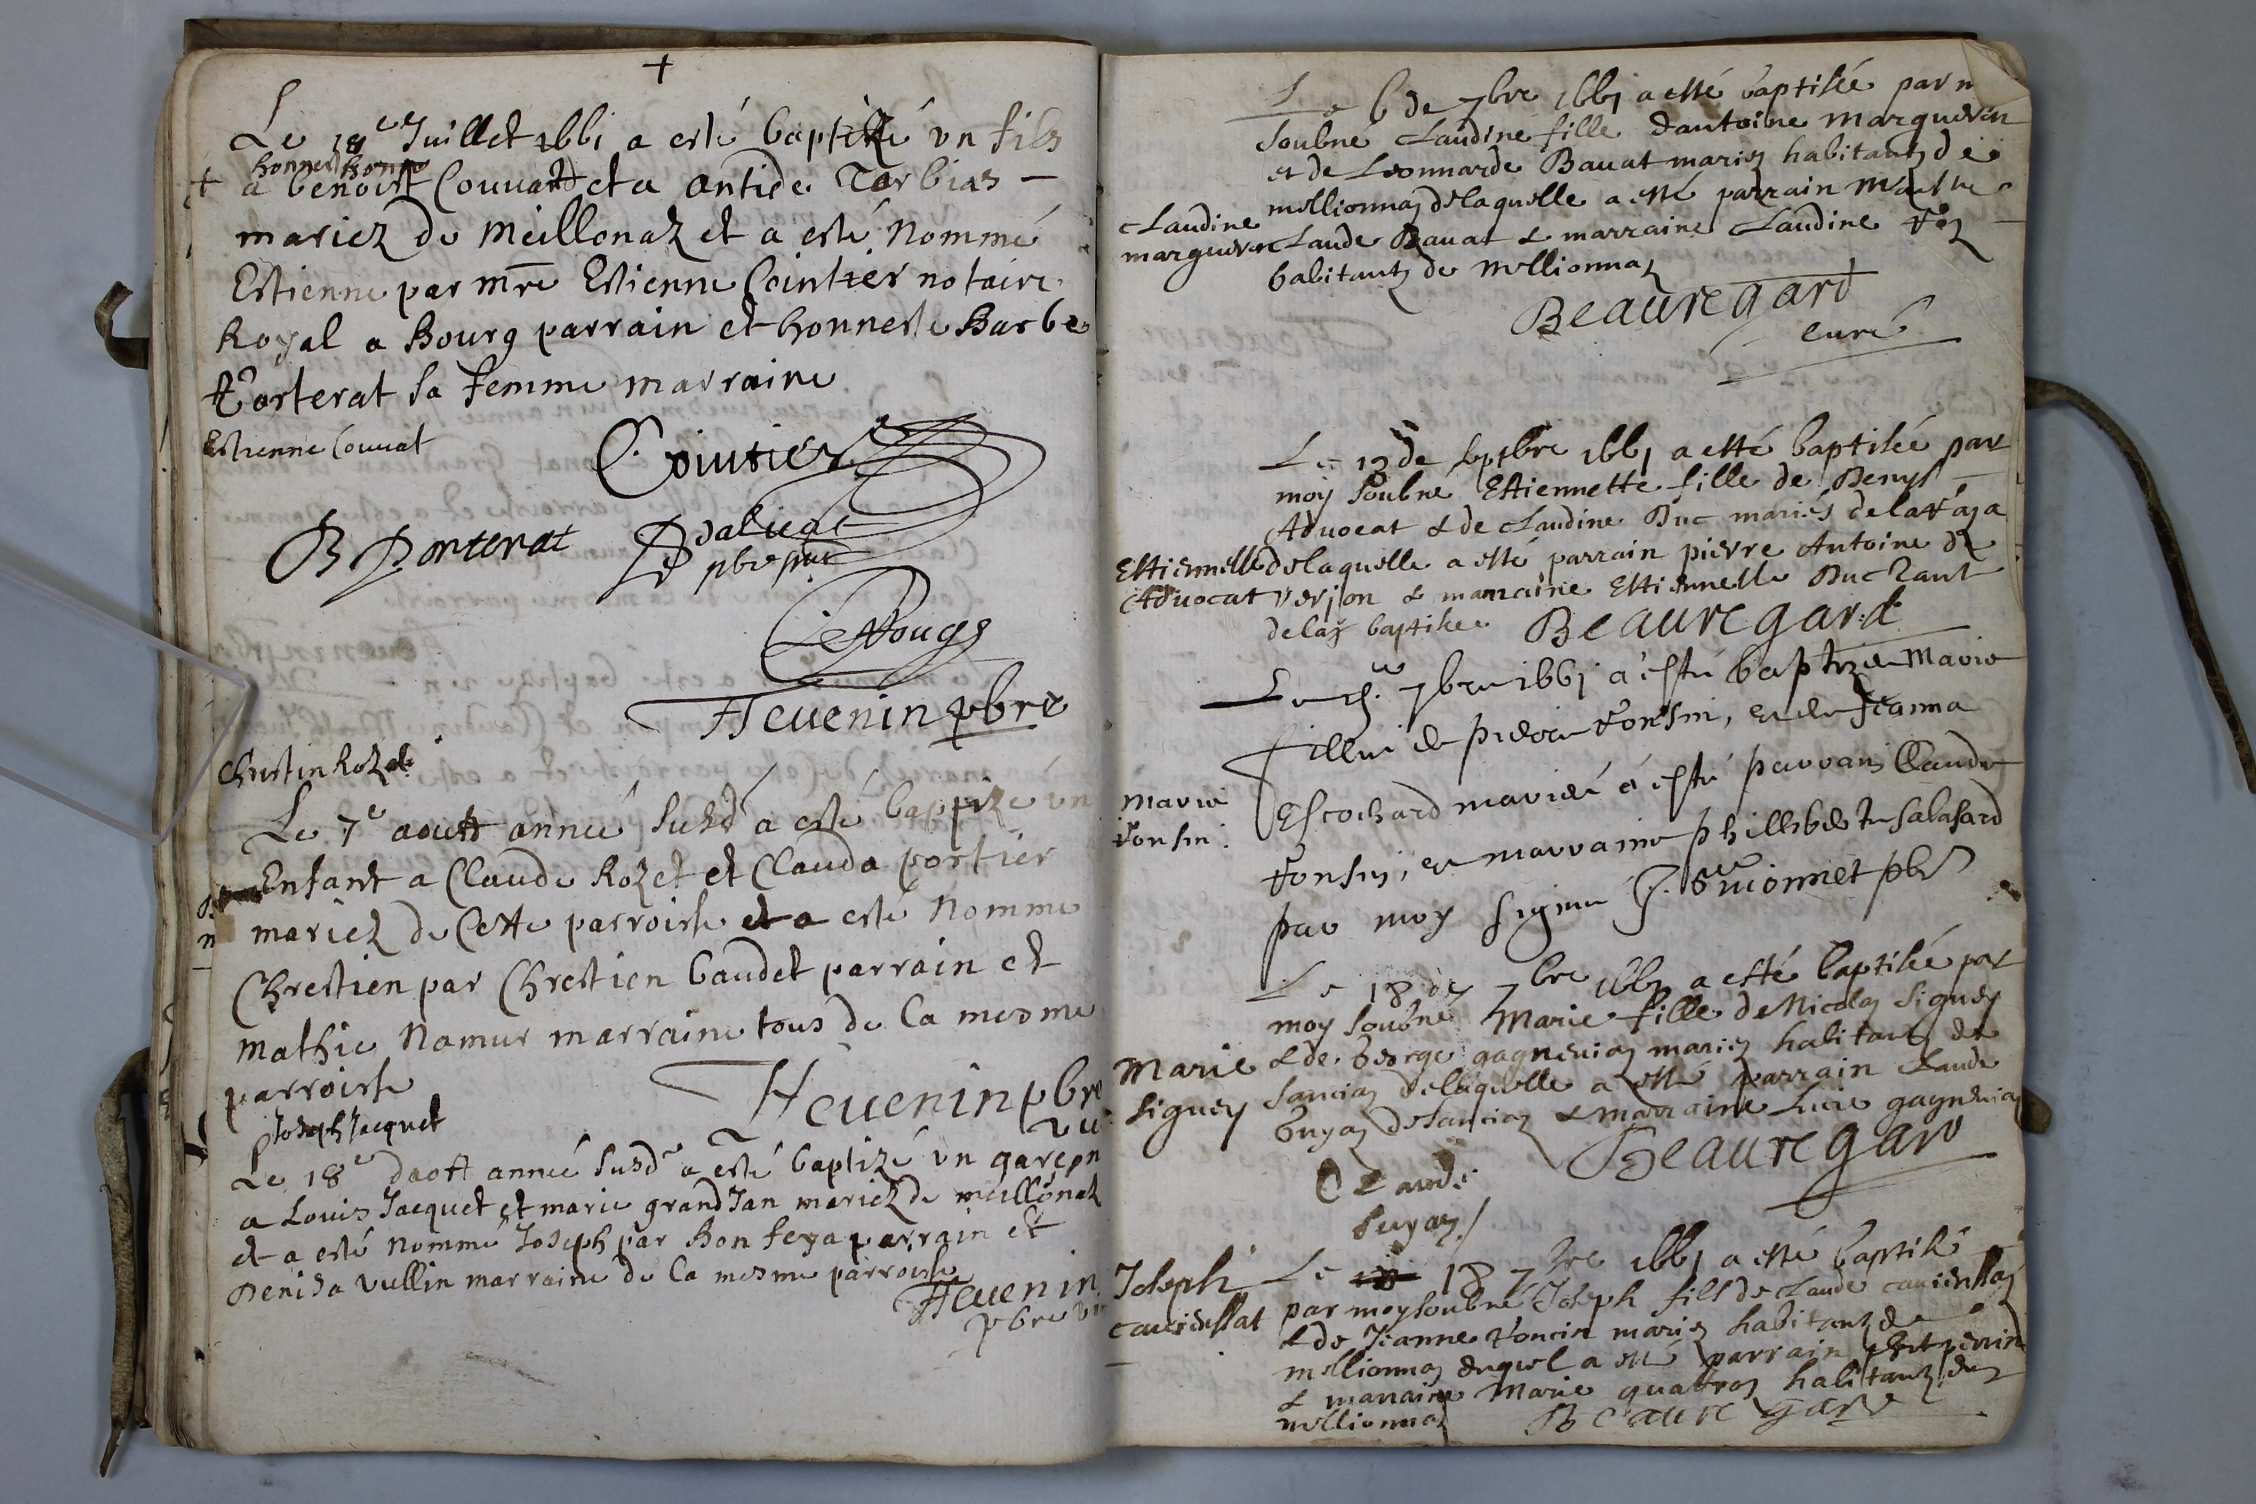 Le 18e Juillet 1661 a esté baptizé un fils
honneste
a benoist Couvard et a antide Tarbias
mariez de Meillonaz et a esté Nommé
Estienne par mre Estienne Cointier notaire
Royal a Bourg parrain et honneste Barbe
Porterat sa femme marraine
Estienne Couvat
Cointier
B Porterat
pbre
Hevenin pbre
Chrestin Rozet
Le 7e aoust année susd a esté baptizé un
Enfant a Claude Rozet et Clauda portier
mariez de Cette parroisse et a esté Nommé
Chrestien par Chrestien baudet parrain et
Mathie Namur marraine tous de la mesme
parroisse
Hevenin pbre
Joseph Jacquet
Le 18e daost année susde a esté baptizé un garçon
a Louis Jacquet et marie grandJan mariez de meillonaz
et a esté nommé Joseph par Bon feya parrain et
Denisa Vullin marraine de la mesme parroisse
Hevenin
pbre
Le 6 de 7bre 1661 a esté baptisée par
soubné Claudine fille dantoine Margueren
et de Leonnarde Bavat mariez habitantz de
mellionnaz delaquelle a esté parrain
Claudine
margueren
Claude Bavat & marraine Claudine
habitantz de Mellionnaz
Beauregard
curé
Le 12 de septbre 1661 a esté baptisée par
moy soubné Estiennette fille de Denys
Advocat & de Claudine Duc mariés
Estiennette
Advocat
delaquelle a esté parrain pierre Antoine de
verjon & marraine Estiennette Duc tant
baptisée
Beauregard
7bre 1661 a esté baptizée Marie
fille de pierre Vonsin, et de Jeanna
Escochard mariés a esté parrain Claude
Marie
Vonsin
Vonsin, et marraine phillib Salasard
par moy signé J. Guionnet pbre
Le 18 de 7bre 1661 a esté baptisée par
moy soubné Marie fille de Nicolas Signey
Marie
Signey
& de george gagneriaz mariez habitantz de
Sanciaz delaquelle a esté parrain Claude
buyaz de Sanciaz & marraine Lucie gagneriaz
Beauregard
Claude
buyaz
Joseph
Le 18 7bre 1661 a esté baptisé
par moy soubné Joseph fils de Claude
& de Jeanne Voncin mariez habitantz de
mellionnaz duquel a esté parrain
& marraine Marie habitantz de
mellionnaz
Beauregard